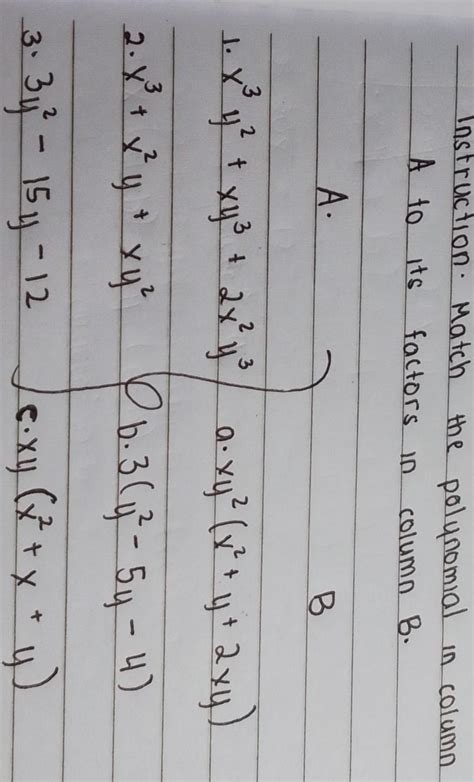 Instruction. Match the polynomial in column
A to its factors in column B.
A. B
1. x³y² + xy³ + 2x²y³ a. xy²(x² + y + 2xy)
2. x³ + x²y + xy² b. 3(y² - 5y - 4)
3. 3y² - 15y - 12 c. xy(x² + x + y)